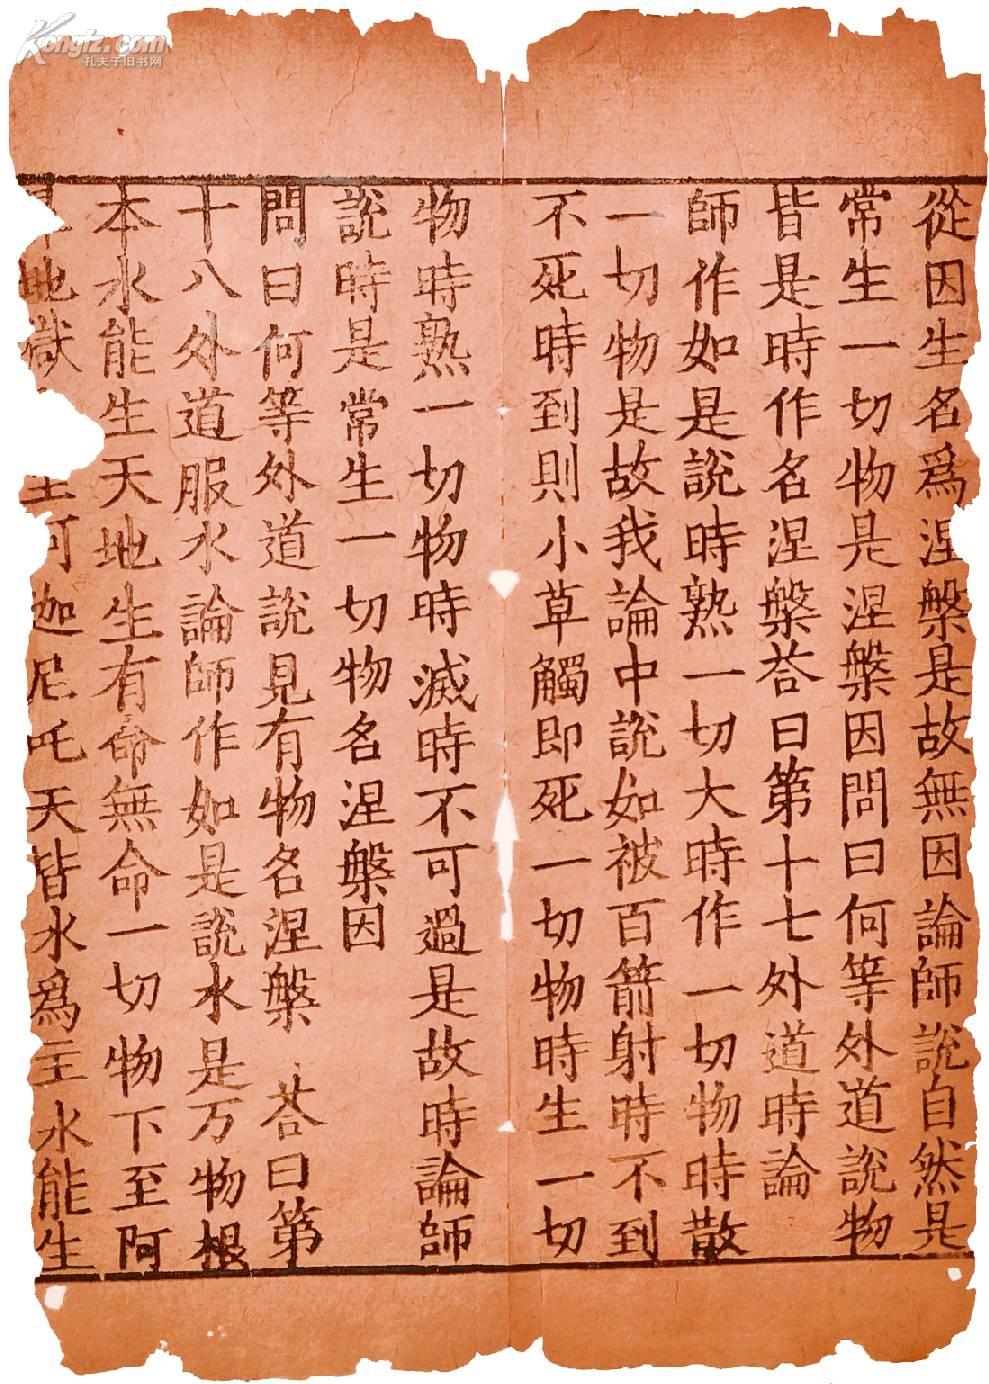 從因生名爲涅槃是故無因論師說自然是
常生一切物是涅槃因問曰何等外道說物
皆是時作名涅槃荅曰第十七外道時論
師作如是說時熟一切大時作一切物時散
一切物是故我論中說如被百箭射時不到
不死時到則小草觸即死一切物時生一切
物時熟一切物時滅時不可過是故時論師
說時是常生一切物名涅槃因
問曰何等外道說見有物名涅槃 荅曰第
十八外道服水論師作如是說水是万物根
本水能生天地生有命無命一切物下至阿
地獄阿迦尼吒天皆水爲主水能生
Kongfz.com
孔夫子旧书网